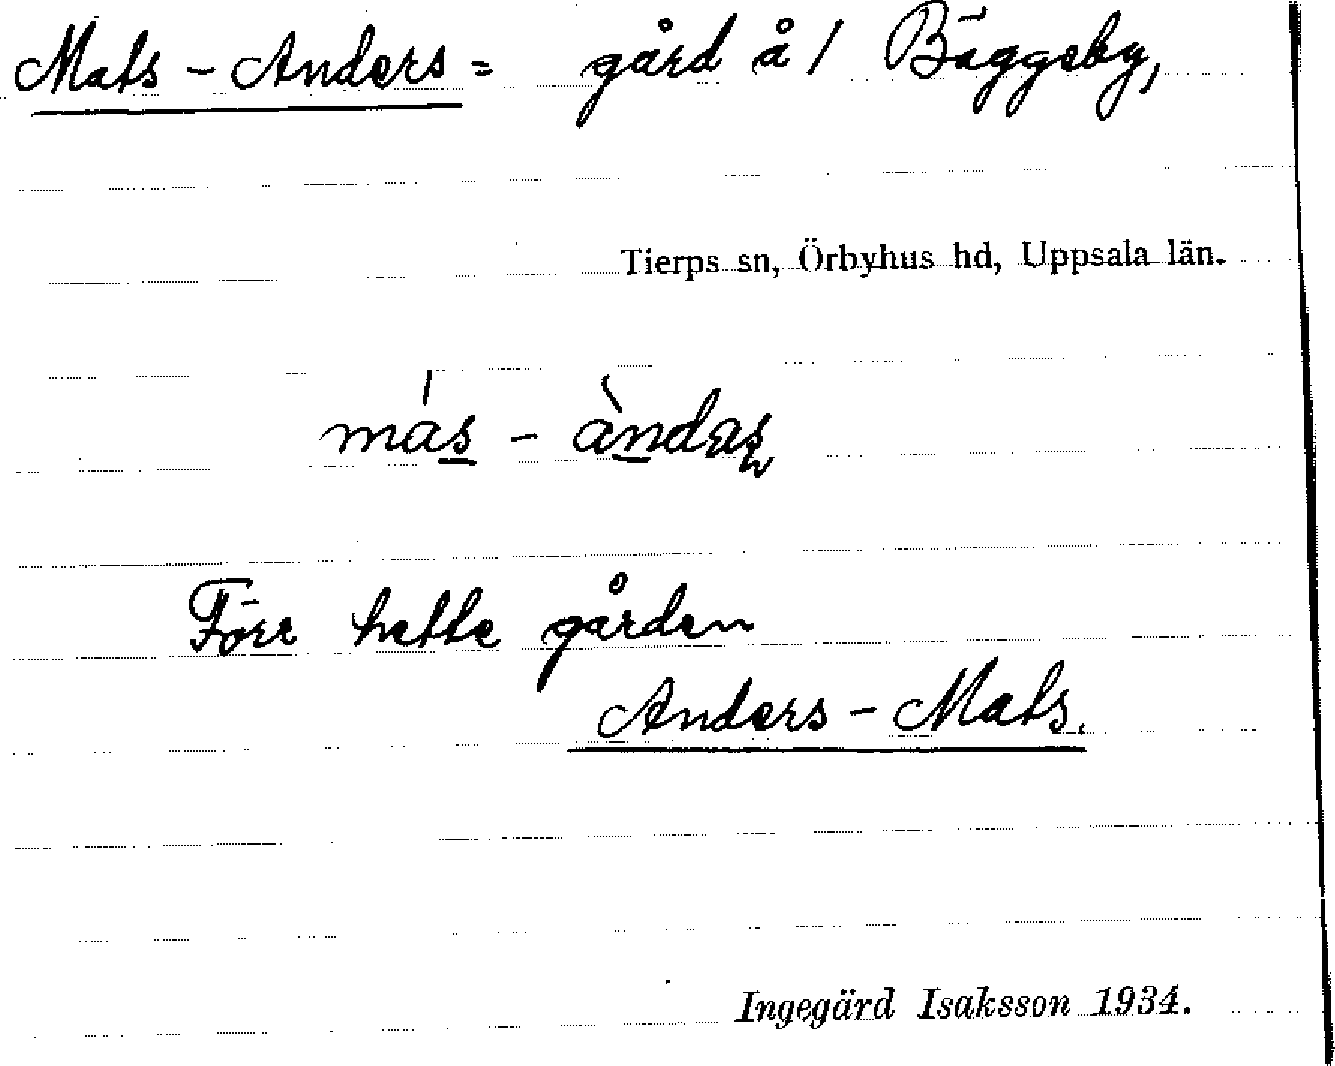 Mats-Anders = gård å 1 Bäggeby,
Tierps sn, Örbyhus hd, Uppsala län.
más - àndas
Förr hette gården
Anders-Mats.
Ingegärd Isaksson 1934.